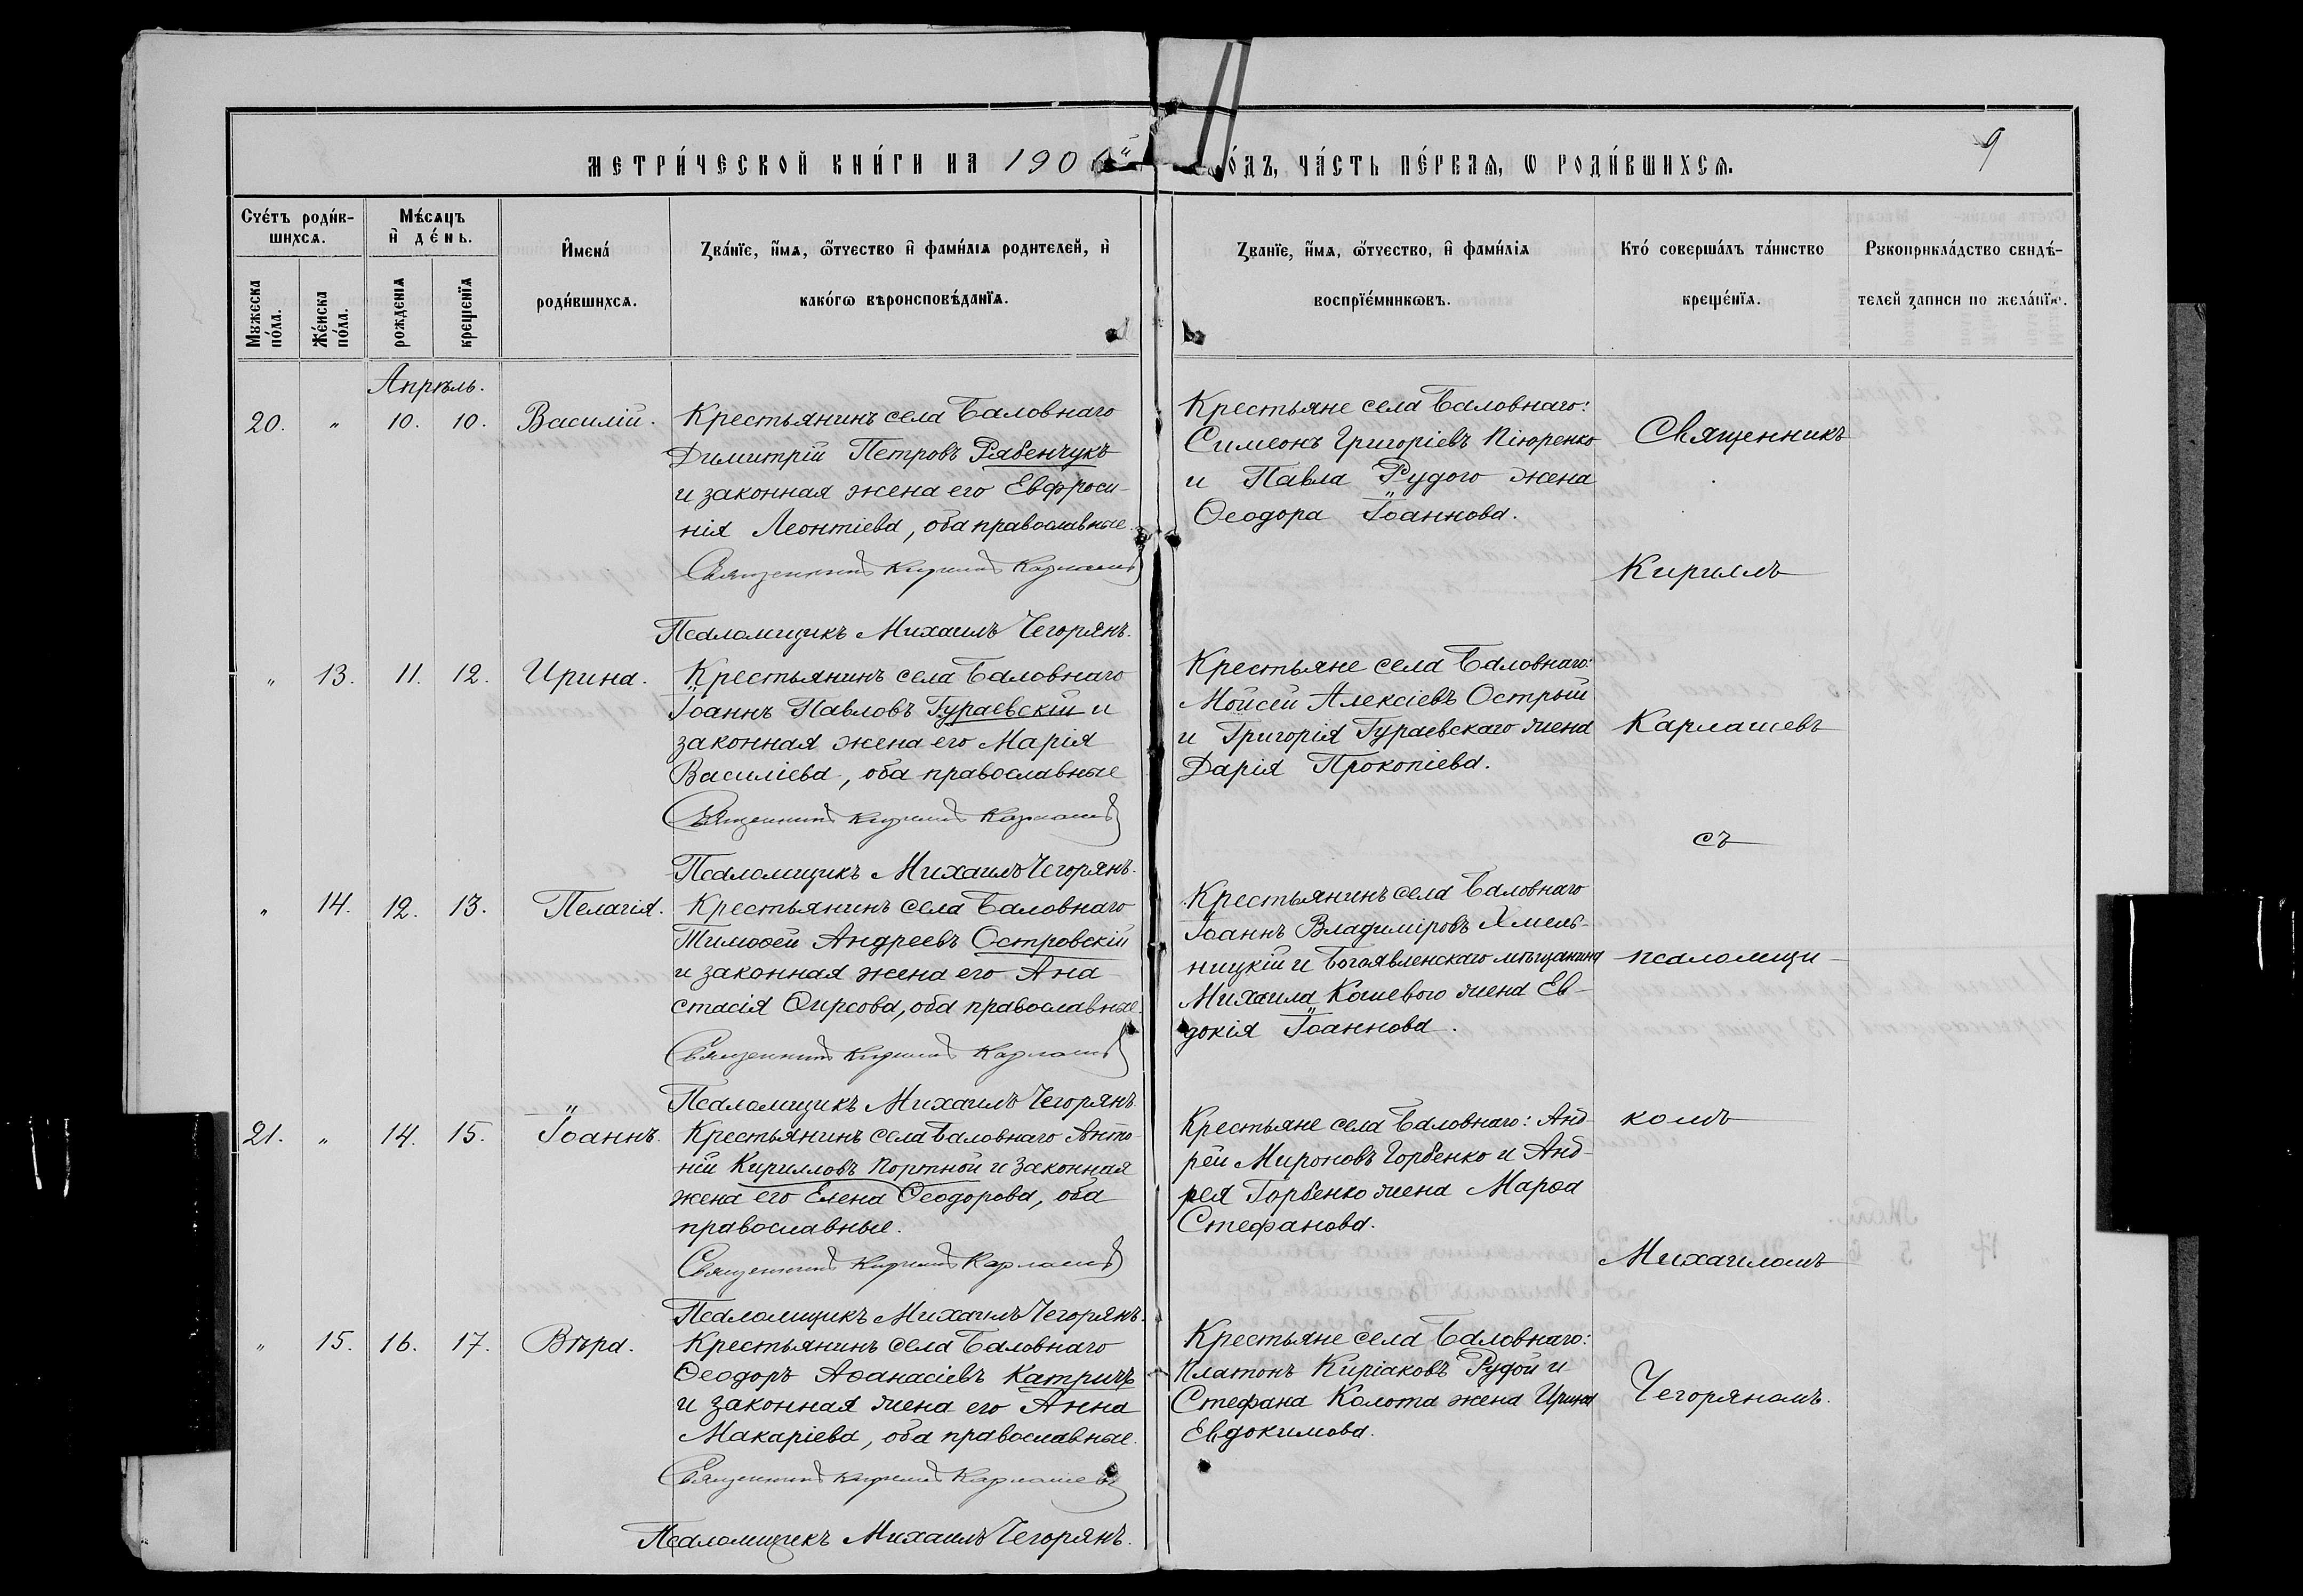 МЕТРИ́ЧЕСКОЙ КНИ́ГИ НА 190
О́ДЪ, ЧА́СТЬ ПЕ́РВАѦ, Ѡ РОДИ́ВШИХСѦ.
9
Сче́тъ роди́в-
шихсѧ.
Мѣ́сѧцъ
и҆ де́нь.
Мꙋжеска
по́ла.
Же́нска
по́ла.
рожденїѧ
крещенїѧ
И҆мена́
роди́вшихсѧ.
Зва́нїе, и҆́мѧ, ѿчество и҆ фами́лїѧ родителей, и҆
како́гѡ вѣроисповѣ́данїѧ.
Зва́нїе, и҆́мѧ, ѿчество, и҆ фами́лїѧ
воспрїе́мникѡвъ.
Кто́ соверша́лъ та́инство
креще́нїѧ.
Рꙋкоприкла́дство свидѣ́-
телей записи по жела́нїю.
Апрѣль.
20. " 10. 10. Василій.
Крестьянинъ села Баловнаго
Димитрій Петровъ Рябенчукъ
и законная жена его Евфроси-
нія Леонтіева, оба православные.
Священникъ Кириллъ Карлашевъ
Псаломщикъ Михаилъ Чегорянъ.
Крестьяне села Баловнаго:
Симеонъ Григоріевъ Піюренко
и Павла Рудого жена
Ѳеодора Іоаннова.
" 13. 11. 12. Ирина.
Крестьянинъ села Баловнаго
Іоаннъ Павловъ Гураевскій и
законная жена его Марія
Василіева, оба православные
Священникъ Кириллъ Карлашевъ
Псаломщикъ Михаилъ Чегорянъ.
Крестьяне села Баловнаго:
Моисей Алексіевъ Острый
и Григорія Гураевскаго жена
Дарія Прокопіева.
" 14. 12. 13. Пелагія.
Крестьянинъ села Баловнаго
Тимоѳей Андреевъ Островскій
и законная жена его Ана
стасія Ѳирсова, оба православные.
Священникъ Кириллъ Карлашевъ
Псаломщикъ Михаилъ Чегорянъ.
Крестьянинъ села Баловнаго
Іоаннъ Владиміровъ Хмель-
ницкій и Богоявленскаго мѣщанина
Михаила Кошевого жена Ев-
докія Іоаннова.
21. " 14. 15. Іоаннъ.
Крестьянинъ села Баловнаго Анто-
ній Кирилловъ Портной и законная
жена его Елена Ѳеодорова, оба
православные.
Священникъ Кириллъ Карлашевъ
Псаломщикъ Михаилъ Чегорянъ.
Крестьяне села Баловнаго: Анд-
рей Мироновъ Горбенко и Анд-
рея Горбенко жена Марѳа
Стефанова.
" 15. 16. 17. Вѣра.
Крестьянинъ села Баловнаго
Ѳеодоръ Аѳанасіевъ Катричъ
и законная жена его Анна
Макаріева, оба православные.
Священникъ Кириллъ Карлашевъ
Псаломщикъ Михаилъ Чегорянъ.
Крестьяне села Баловнаго:
Платонъ Киріаковъ Рудой и
Стефана Колота жена Ирина
Евдокимова.
Священникъ
Кириллъ
Карлашевъ
съ
псаломщи-
комъ
Михаиломъ
Чегоряномъ.